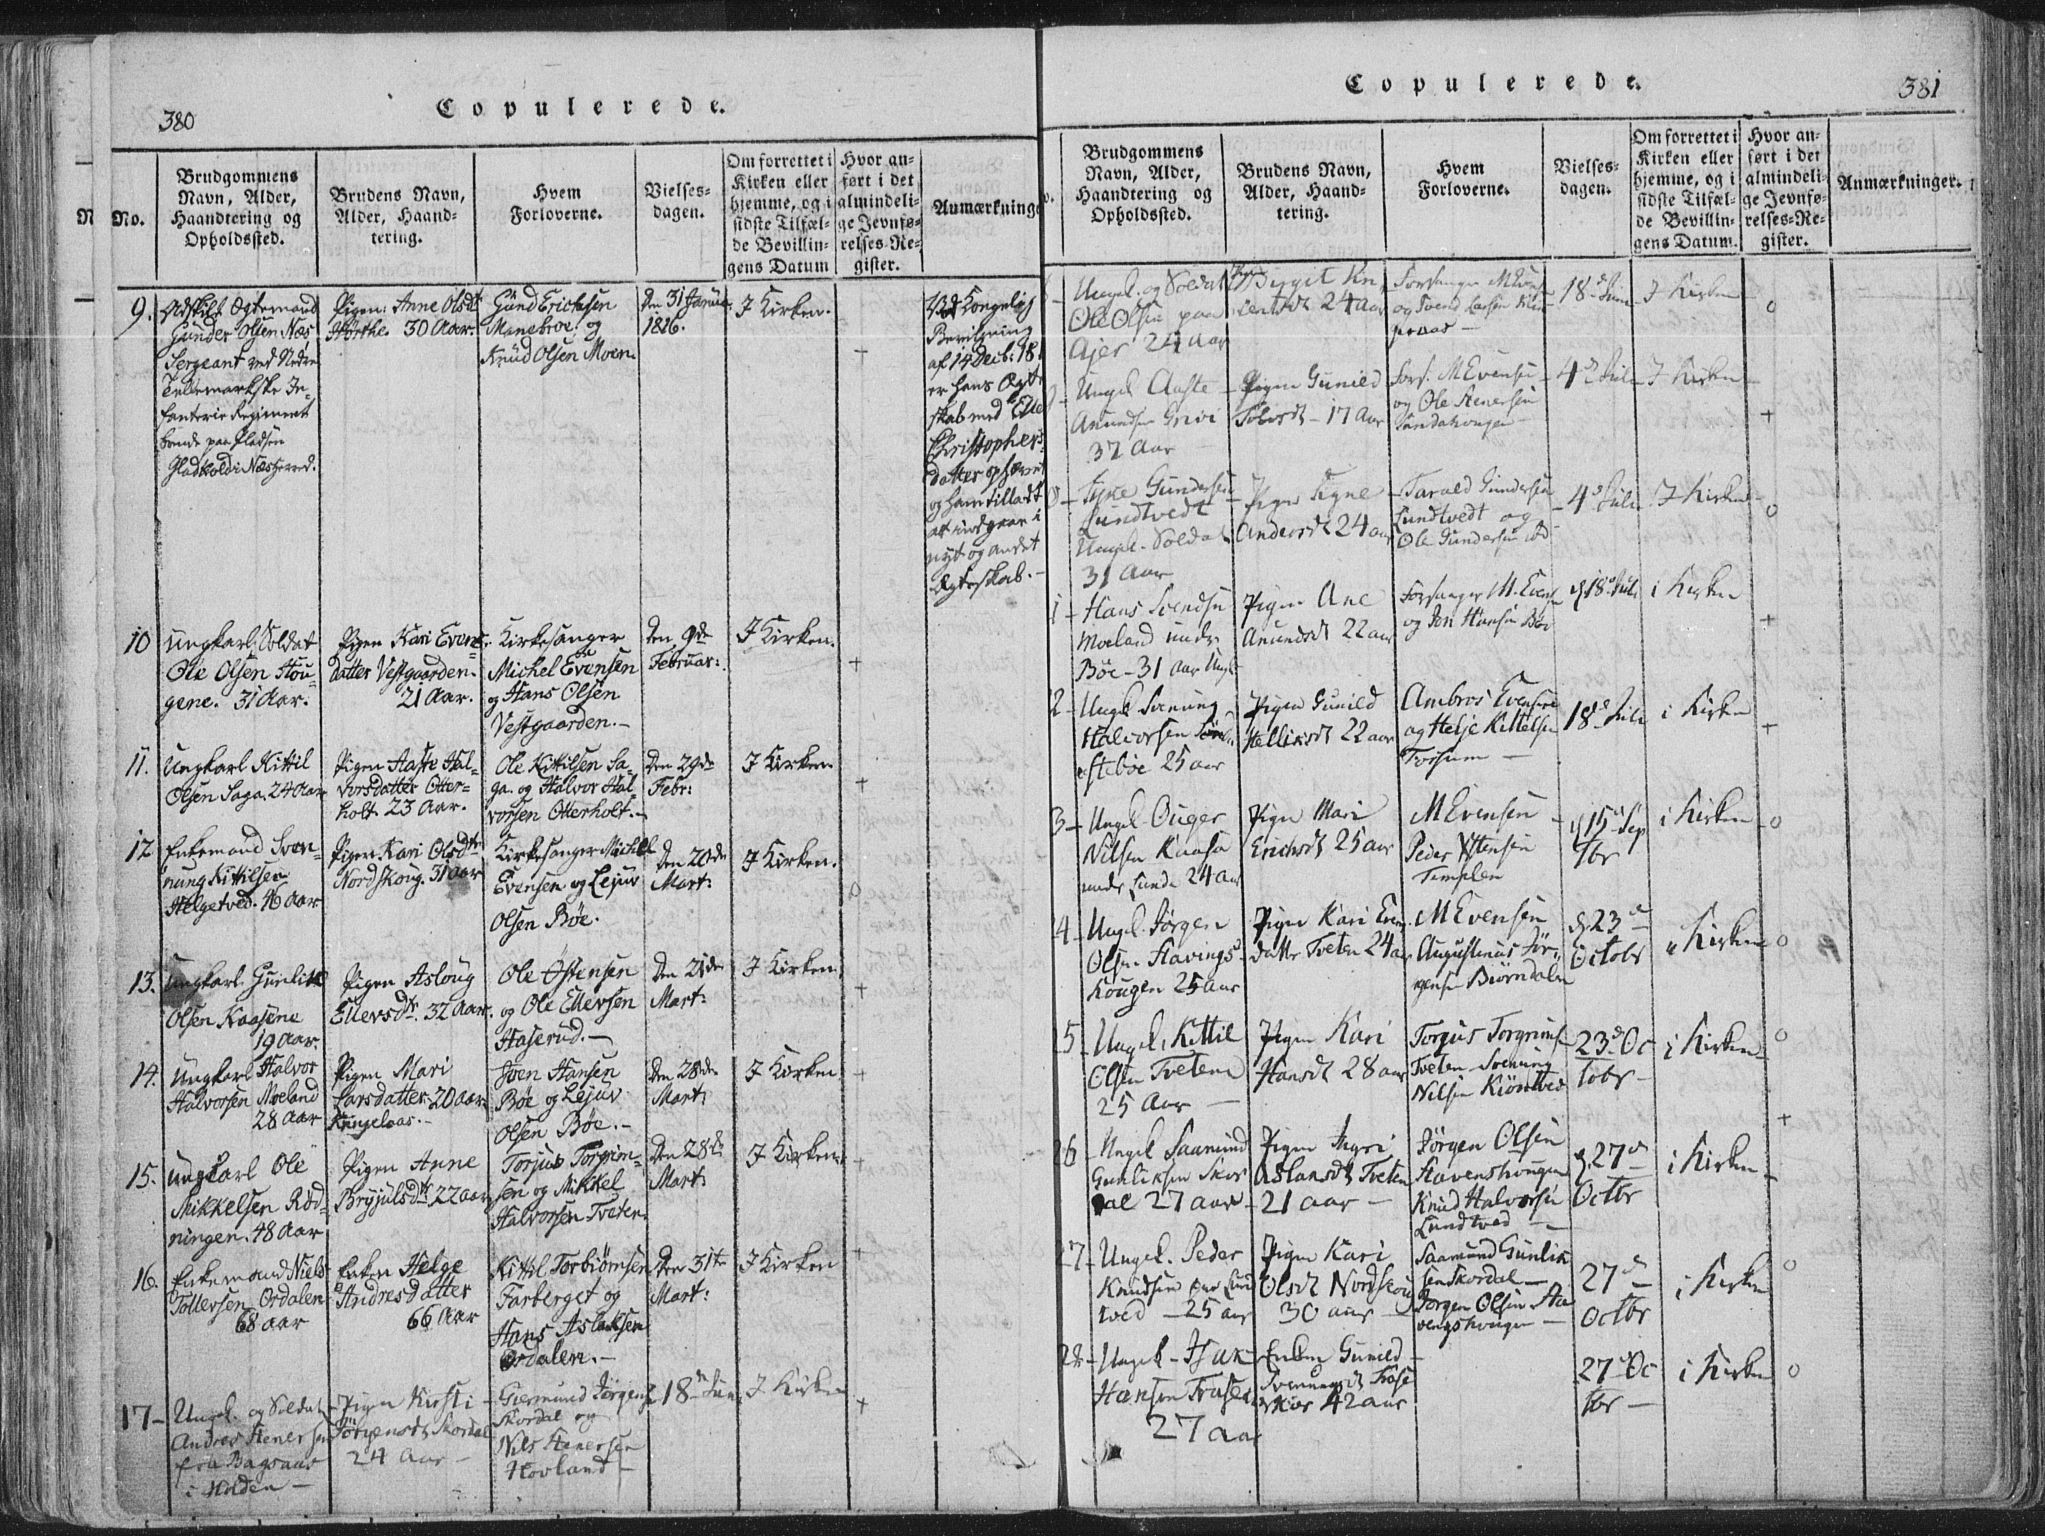 380
Copulerede.
No.
Brudgommens
Navn, Alder,
Haandtering og
Opholdssted.
Brudens Navn,
Alder, Haand-
tering.
Hvem
Forloverne.
Vielses-
dagen.
Om forrettet i
Kirken eller
hjemme, og i
sidste Tilfæl-
de Bevillin-
gens Datum
Hvor an-
ført i det
almindeli-
ge Jevnfø-
relses-Re-
gister.
Anmærkninge
9.
Adskilt Ægtemand
Gunder Olsen Næs
Sergeant ved Nedre
Tellemarkske In-
fanterie Regiment
boende paa Pladsen
i Næsherred.
Pigen: Anne Olsdtr
30 Aar.
Gund Erichsen
Manebroe og
Knud Olsen Moen.
Den 31 Januar
1816.
I Kirken.
Ved Kongelig
Bevilgning
af 14 Decb: 18
er hans Ægte
skab med
Christophers
datter ophævet
og ham tilladt
at indgaae i
nyt og andet
Ægteskab. -
10
Ungkarl, Soldat
Ole Olsen Hou-
gene. 31 Aar.
Pigen Kari Evens-
datter Vestgaarden.
21 Aar.
Kirkesanger
Michel Evensen
og Hans Olsen
Vestgaarden. -
Den 9de
Februar:
I Kirken.
11.
Ungkarl Kittil
Olsen Saga. 24 Aar
Pigen Aaste Hal-
vorsdatter Otter-
holt. 23 Aar.
Ole Kittilsen Sa-
ga. og Halvor Hal-
vorsen Otterholt. -
Den 29de
Febr:
I Kirken
12
Enkemand Sven-
nung Kittilsen
Helgetved. 46 Aar
Pigen Kari Olsdtr
Nordskoug. 31 Aar
Kirkesanger Michel
Evensen og Lejuv
Olsen Bøe.
Den 20de
Mart:
I Kirken.
13.
Ungkarl Gunlik
Olsen Kaasene
19 Aar.
Pigen Asloug
Ellevsdtr. 32 Aar.
Ole Østensen
og Ole Ellevsen
Haserud. -
Den 21de
Mart:
I Kirken.
14.
Ungkarl Halvor
Halvorsen Moeland
28 Aar
Pigen Mari
Larsdatter. 20 Aar
Sven Hansen
Bøe og Lejuv
Olsen Bøe. -
Den 28de
Mart:
I Kirken
15.
Ungkarl Ole
Mikkelsen Rød-
ningen. 48 Aar
Pigen Anne
Bryjulsdtr 22 Aar
Torjus Torgrim-
sen og Mikkel
Halvorsen Tveten.
Den 28de
Mart:
I Kirken.
16.
Enkemand Niels
Tollevsen Ordalen
68 Aar
Enken Helge
Andresdatter
66 Aar
Kittil Torbiørnsen
Farberget og
Hans Aslaksen
Ordalen. -
Den 31te
Mart:
I Kirken
17-
Ungk. og Soldat
Andres Stenersen
fra Bagaas
i Holden -
Pigen Kirsti
Jörgensdt Skordal
24 Aar -
Giermund Jörgens
Skordal og
Nils Stenersen
Hovland -
18de Jun
I Kirken
381
Copulerede.
Brudgommens
Navn, Alder,
Haandtering og
Opholdssted.
Brudens Navn,
Alder, Haand-
tering.
Hvem
Forloverne.
Vielses-
dagen.
Om forrettet i
Kirken eller
hjemme, og i
sidste Tilfæl-
de Bevillin-
gens Datum.
Hvor an-
ført i det
almindeli-
ge Jevnfø-
relses-Re-
gister.
Anmærkninger.
Ungk. og Soldat
Ole Olsen paa
Ajer 24 Aar
Birgit Kn
24 Aar
Forsanger M Evens
og Svend Larsen
18de Juni
I Kirken
Ungk Aaste
Anundsen Grivi
37 Aar
Pigen Gunild
Tolvsdt - 17 Aar
Fors. M Evensen
og Ole Stenersen
Sundakongen
4de Juli
I Kirken
Gundersen
Lundtvedt
Ungk. Soldat
31 Aar
Pigen Signe
Andersdt 24 aar
Tarald Gundersen
Lundtvedt og
Ole Gundersen ibd
4de Juli
I Kirken
1-
Hans Svendsen
Moeland under
Bøe - 31 Aar Ungk
Pigen Ane
Anundsdt 22 aar
Forsanger M. Evens
og Jon Hansen Böe
d 18de Juli
i Kirken
2-
Ungk Svenung
Halvorsen
25 aar
Pigen Gunild
Hellixsdt 22 aar
Ambros Evensen
og Helje Kittelsen
Forsum -
18de Juli
i Kirken
3-
Ungk Ouger
Nilsen Kaasa
under Lunde 24 Aar
Pigen Mari
Erichsdt 25 aar
M Evensen
Peder Ystensen
Templen
d 15de Sep
tbr
i Kirken
4-
Ungk. Jörgen
Olsen Havings-
kougen 25 Aar
Pigen Kari Even
datter Tveten 24 aar
M Evensen
Augustinus Jör-
gensen Biörndalen
d. 23de
Octobr
i Kirken
5-
Ungk. Kittil
Olsen Tvetene
25 Aar -
Pigen Kari
Hansdt 28 aar
Torjus Torgrims
Tveten Svenung
Nilsen Kiöntved
23de Oc
tobr -
i Kirken
26
Ungk Saamund
Gunliksen Skor
dal 27 aar
Pigen Ingri
Aslansdt Tveten
21 aar -
Jörgen Olsen
Havenskougen
Knud Halvorsen
Lundtved -
d. 27de
Octbr
i Kirken
27-
Ungk. Peder
Knudsen paa Lund
tved - 25 aar
Pigen Kari
Olsdt Nordskoug
30 aar -
Saamund Gunlik
sen Skordal -
Jörgen Olsen Ha
vengskougen -
27de
Octbr
i Kirken
28-
Ungk - Isak
Hansen Fraser
27 aar
Enken Gunild
42 aar
27de Oc
tbr -
i Kirken